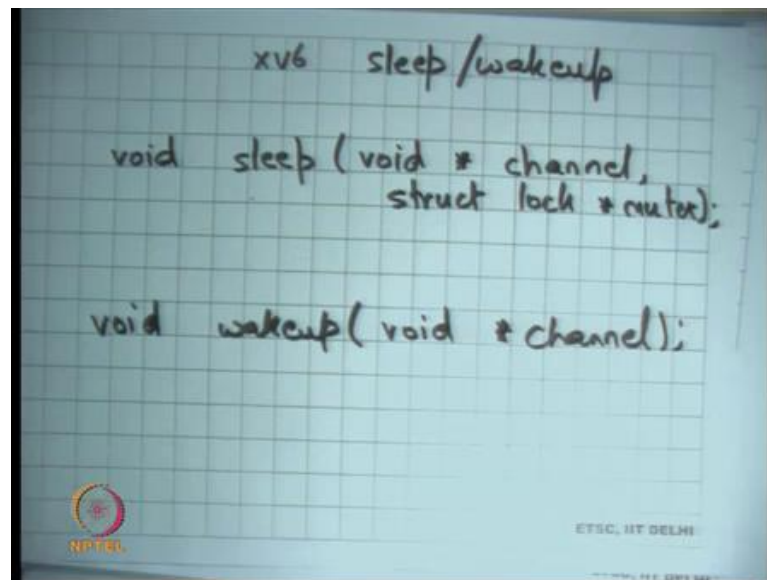 xv6 sleep/wakeup
void sleep (void * channel,
struct lock * mutex);
void wakeup( void * channel);
NPTEL
ETSC, IIT DELHI